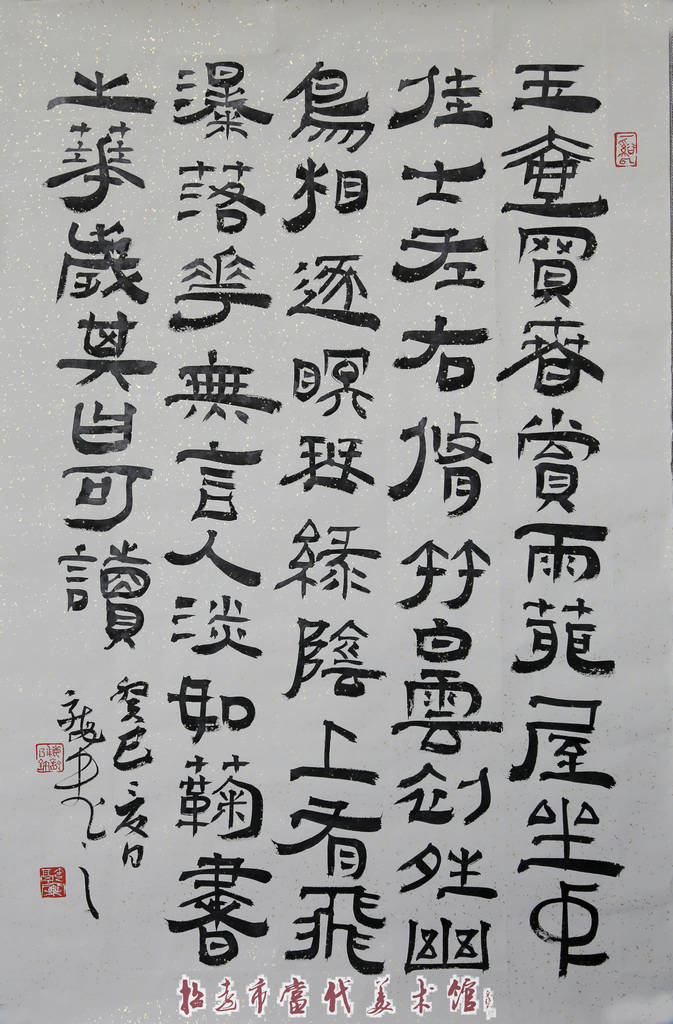 玉壺買春賞雨茆屋坐中
佳士左右脩竹白雲初晴幽
鳥相逐瞑琴綠陰上有飛
瀑落花無言人淡如蘜書
之華歲其曰可讀
癸巳
招远市當代美术馆